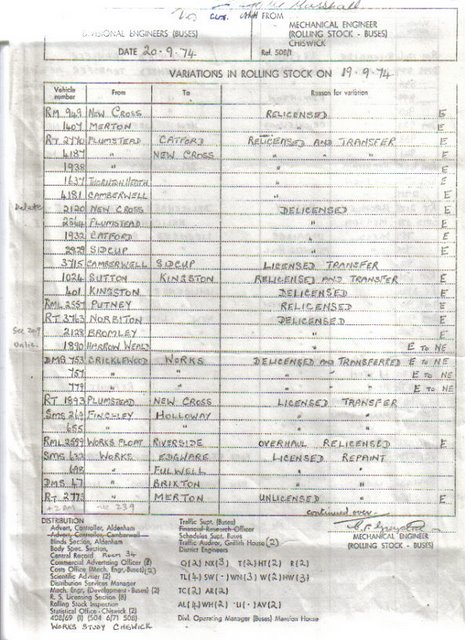 Marshall
FROM
DIVISIONAL ENGINEERS (BUSES)
MECHANICAL ENGINEER
(ROLLING STOCK - BUSES)
CHISWICK
DATE 20-9-74
Ref. 508/1
VARIATIONS IN ROLLING STOCK ON 19.9.74
Vehicle number From To Reason for variation
RM 949 NEW CROSS RELICENSED E
1407 MERTON " E
RT 2770 PLUMSTEAD CATFORD RELICENSED AND TRANSFER E
4187 " NEW CROSS " " " E
1938 " " E
1627 THORNTON HEATH " E
4181 CAMBERWELL " E
Delete 2120 NEW CROSS DELICENSED E
2564 PLUMSTEAD " E
1932 CATFORD " E
2929 SIDCUP " E
RT 3715 CAMBERWELL SIDCUP LICENSED TRANSFER
1024 SUTTON KINGSTON RELICENSED AND TRANSFER E
401 KINGSTON DELICENSED E
RML 2557 PUTNEY RELICENSED E
RT 3763 NORBITON DELICENSED E
See 20.9 2128 BROMLEY " E
1890 HARROW WEALD " E TO NE
DMS 753 CRICKLEWOOD WORKS DELICENSED AND TRANSFERED E TO NE
757 " " " " E TO NE
779 " " " " E TO NE
RT 1893 PLUMSTEAD NEW CROSS LICENSED TRANSFER
SMS 269 FINCHLEY HOLLOWAY " "
655 " " " "
RML 2599 WORKS FLOAT RIVERSIDE OVERHAUL RELICENSED E
SMS 632 WORKS EDGWARE LICENSED REPAINT
698 " FULWELL " "
DMS 47 " BRIXTON " "
RT 2773 " MERTON UNLICENSED E
239
continued over
MECHANICAL ENGINEER
(ROLLING STOCK - BUSES)
DISTRIBUTION
Advert. Controller, Aldenham
Advert. Controller, Camberwell
Blinds Section, Aldenham
Body Spec. Section,
Central Record Room 34
Commercial Advertising Officer
Costs Office (Mech. Engr., Buses)(2)
Scientific Adviser (2)
Distribution Services Manager
Mech. Engr. (Development - Buses) (2)
R. S. Licensing Section (8)
Rolling Stock Inspection
Statistical Office - Chiswick (2)
408/69 (1) (504 6/71 508)
WORKS STUDY CHISWICK
Traffic Supt. (Buses)
Financial Research Officer
Schedules Supt. Buses
Traffic Auditor, Griffith House (2)
District Engineers
Q(2) NX(3) T(2) HT(2) R(2)
TL(4) SW(-) WN(3) W(2) HW(3)
TC(2) AR(2)
AL(4) WH(2) U(-) AV(2)
Divl. Operating Manager (Buses) Mansion House